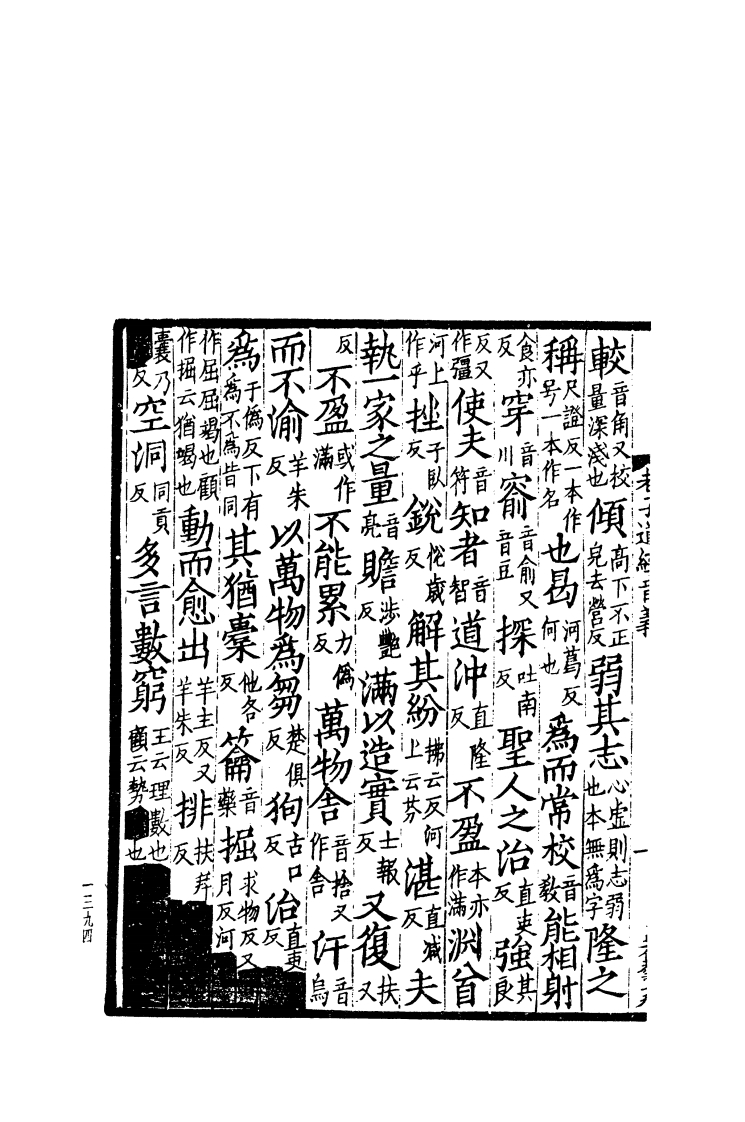 老子道經音義
較音角又校量深淺也傾高下不正皃去營反弱其志心虛則志弱也本無為字隆之
稱尺證反一本作号一本作名也曷河葛反何也為而常校音教能相射
食亦反穿音川窬音俞又音豆探吐南反聖人之治直吏反強其良
反又作彊使夫音符知者音智道沖直隆反不盈本亦作滿淵首
河上作乎挫子臥反銳悅歲反解其紛拂云反河上云芬湛直減反夫
執一家之量音亮贍涉艷反滿以造實士報反又復扶又
反不盈或作滿不能累力偽反萬物舍音捨又作舎汙音烏
而不渝羊朱反以萬物為芻楚俱反狗古口反治直吏反
為于偽反下有為不為皆同其猶橐他各反籥音藥掘求物反又月反河
作屈屈竭也顧作掘云猶竭也動而愈出羊主反又羊朱反排扶反
囊乃反空洞同貢反多言數窮王云理數也顧云勢也
一三九四